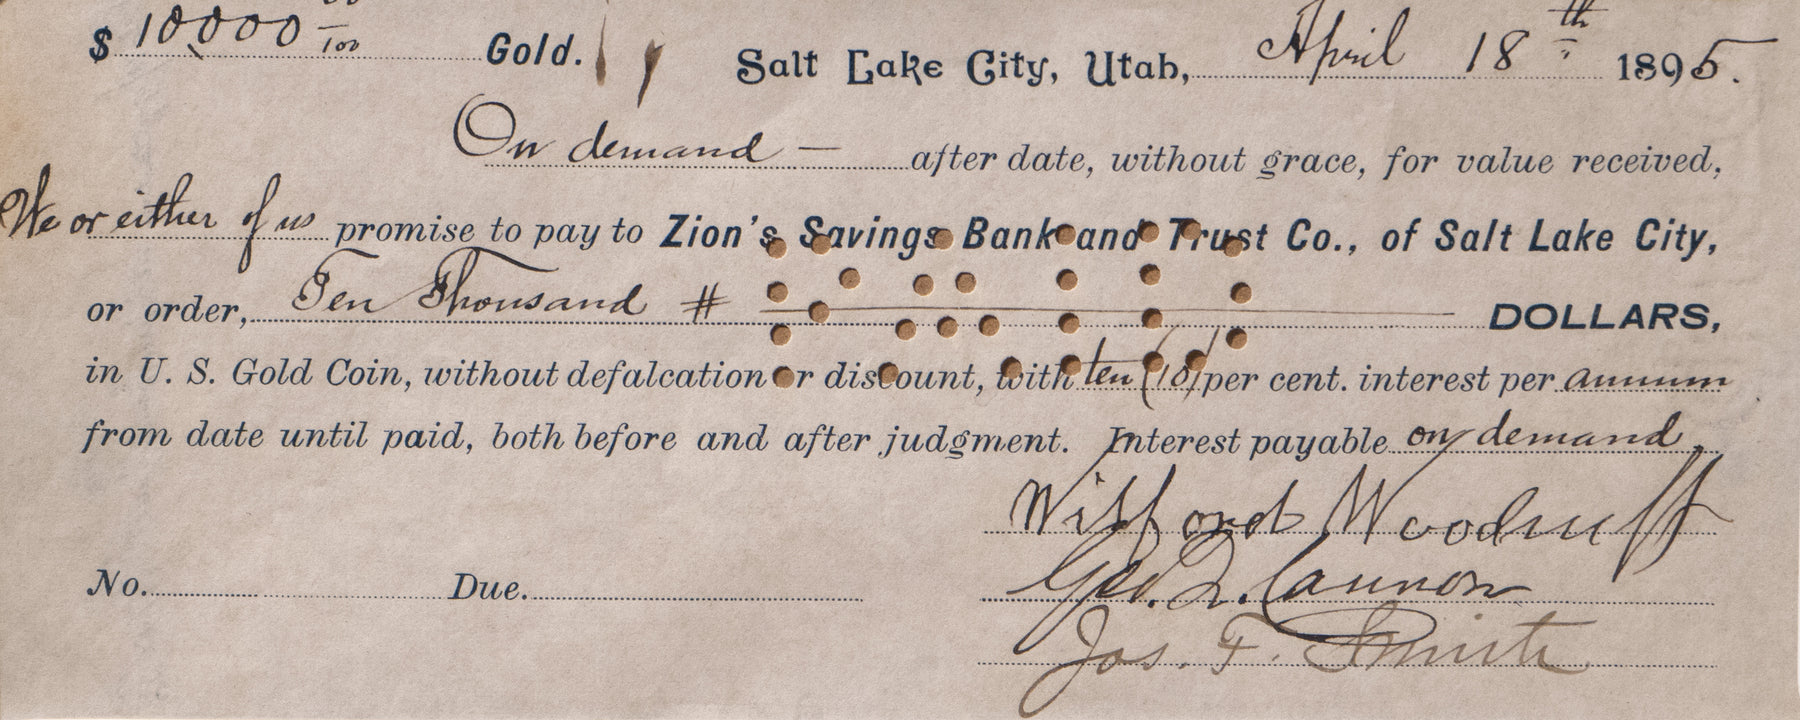 $ 10,000 00/100 Gold. Salt Lake City, Utah, April 18th 1895.
On demand — after date, without grace, for value received,
We or either of us promise to pay to Zion's Savings Bank and Trust Co., of Salt Lake City,
or order, Ten Thousand # DOLLARS,
in U. S. Gold Coin, without defalcation or discount, with ten (10) per cent. interest per annum
from date until paid, both before and after judgment. Interest payable on demand.
Wilford Woodruff
No. Due. Geo. Q. Cannon
Jos. F. Smith
PAID